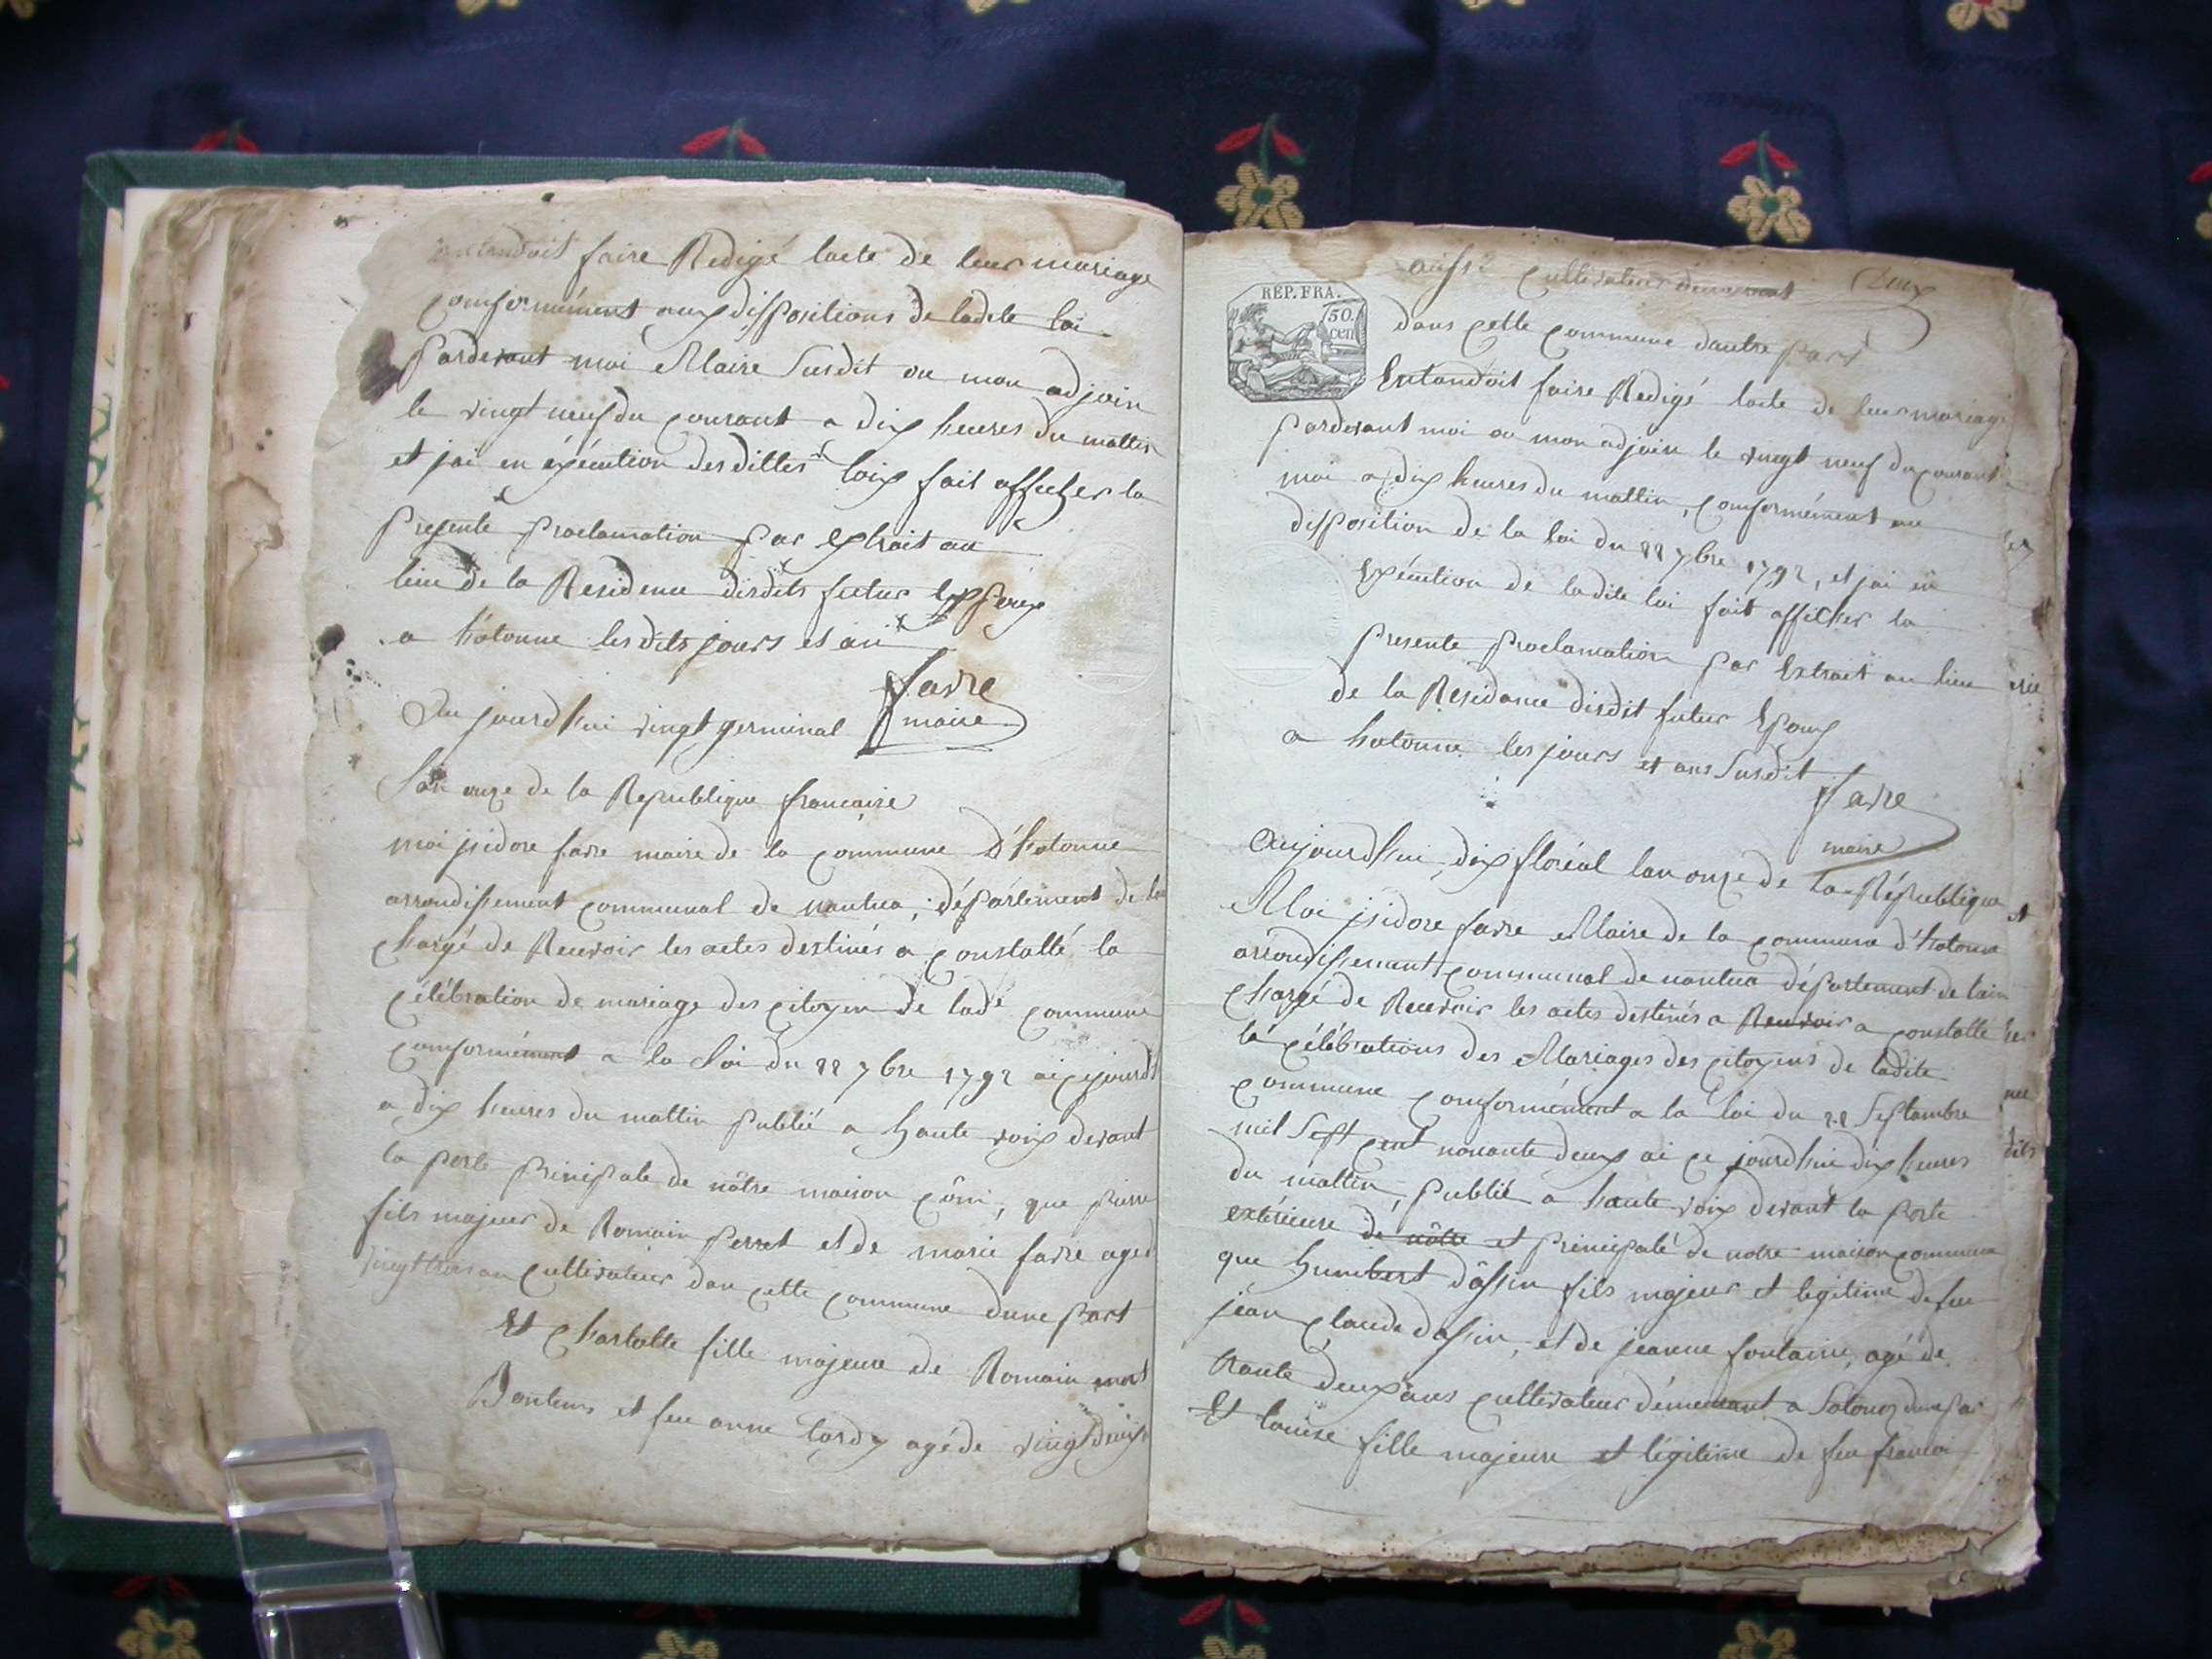 entandoit faire Redigé lacte de leur mariage
conformément aux dispositions de ladite loi
pardevant moi Maire Susdit ou mon adjoin
le vingt neuf du courant a dix heures du mattin
et jai en éxécution des dittes loix fait afficher la
presente proclamation par extrait au
lieu de la Residence disdits futur Epoux
a hotonne les dits jours et an
favre
maire
Au jourdhui vingt germinal
Lan onze de la Republique francaise
moi jsidore favre maire de la commune d'hotonne
arrondissement communal de nantua, département de lain
chargé de Recevoir les actes destinés a constatté la
célébration de mariage des citoyen de lade commune
conformément a la Loi du 22 7bre 1792 ai cejourdh
a dix heures du mattin publié a haute voix devant
la porte principale de nôtre maison com, que pierre
fils majeur de Romain perret et de marie favre agé
vingt trois an cultivateur dan cette commune dune part
Et Charlotte fille majeure de Romain
Bontems et feu anne tardy agé de vingt
aussi cultivateur demeurant
deux
REP. FRA.
50.
cen
dans cette commune dautre part
Entandoit faire Redigé lacte de leur mariage
pardevant moi ou mon adjoin le vingt neuf du courant
moi a dix heures du mattin, conformément au
disposition de la loi du 22 7bre 1792, et jai en
Exécution de ladite loi fait afficher la
presente proclamation par Extrait au lieu
de la Residance disdit futur Epoux
a hotonne les jours et ans Susdit
favre
maire
Aujourdhui dix floréal lan onze de la République
Moi jsidore favre Maire de la commune d'hotonne
arrondissement communal de nantua département de lain
chargé de Recevoir les actes destinés a Recevoir a constatté
la célébrations des Mariages des citoyens de ladite
commune conformément a la loi du 22 Septambre
mil Sept cent nonante deux ai ce jourdhui dix heures
du mattin, publié a haute voix devant la porte
extérieure de nôtre et principale de notre maison commune
que humbert dassin fils majeur et legitime de feu
jean claude dassin, et de jeanne fontaine, agé de
trante deux ans cultivateur demeurant a Sotonoz dune par
Et louise fille majeure et légitime de feu francoi